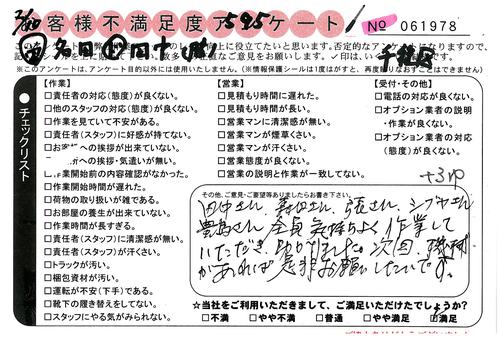 お客様不満足度アンケート
No 061978
千種区
※このアンケートは、アンケート目的以外には使用いたしません。(※情報保護シールは1度はがすと、再度貼りなおすことはできません)
●チェックリスト
【作業】
□責任者の対応(態度)が良くない。
□他のスタッフの対応(態度)が良くない。
□作業を見ていて不安がある。
□責任者(スタッフ)に好感が持てない。
への挨拶が出来ていない。
への挨拶・気遣いが無い。
作業開始前の内容確認がなかった。
□作業開始時間が遅れた。
□荷物の取り扱いが雑である。
□お部屋の養生が出来ていない。
□作業時間が長すぎる。
□責任者(スタッフ)に清潔感が無い。
□責任者(スタッフ)が汗くさい。
□トラックが汚い。
□梱包資材が汚い。
□運転が不安(下手)である。
□靴下の履き替えをしてない。
□スタッフにやる気がみられない。
【営業】
□見積もり時間に遅れた。
□見積もり時間が長い。
□営業マンに清潔感が無い。
□営業マンが煙草くさい。
□営業マンが汗くさい。
□営業態度が良くない。
□営業の説明と作業が一致してない。
【受付・その他】
□電話の対応が良くない。
□オプション業者の説明
・作業が良くない。
□オプション業者の対応
(態度)が良くない。
その他、ご意見・ご要望等ありましたらお書き下さい。
田中さん、
全員気持ちよく作業して
いただき、助かりました。次回、機材
があれば是非お願いしたいです。
☆当社をご利用いただきまして、ご満足いただけたでしょうか?
□不満 □やや不満 □普通 □やや満足 満足